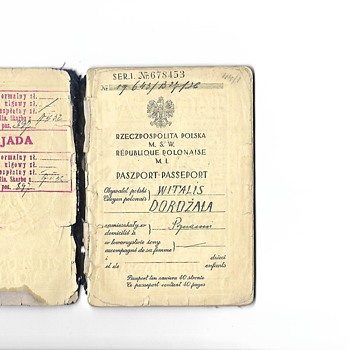 ormalny zł.
ulgowy zł.
JADA
ormalny zł.
ulgowy zł.
SER. I. № 678453
RZECZPOSPOLITA POLSKA
M. S. W.
RÉPUBLIQUE POLONAISE
M. I.
PASZPORT-PASSEPORT
Obywatel polski WITALIS
Citoyen polonais DOROŻAŁA
zamieszkały w
domicilié à
w towarzystwie żony
accompagné de sa femme
i dzieci
et de enfants
Paszport ten zawiera 40 stronic
Ce passeport contient 40 pages